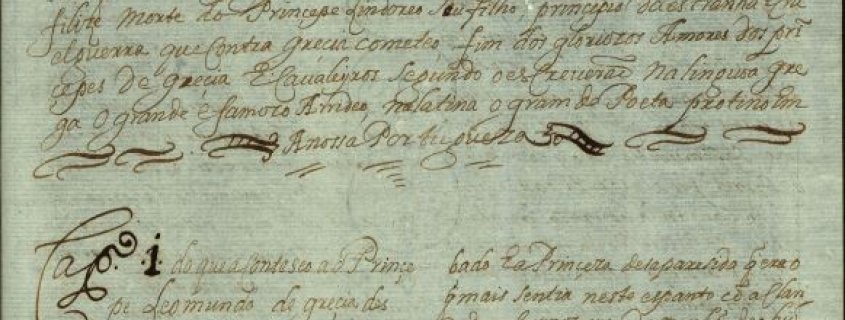 filire Morte do Principe Lindoreo seu filho, principio da estranha E cru
el guerra que contra Grecia cometeo, fim dos gloriozos Amores dos prī
cepes de grecia E Cavaleyros segundo o escreverão na lingoa gre
ga o grande e famozo Amideo, na latina o gram de Poeta protino Em
A nossa Portugueza
Capo. i do que aConteseo ao Prinçe
pe Leomundo de grecia des
bado E a Princeza desaparesida q̃ era o
q̃ mais sentia neste espanto cõ a Clan